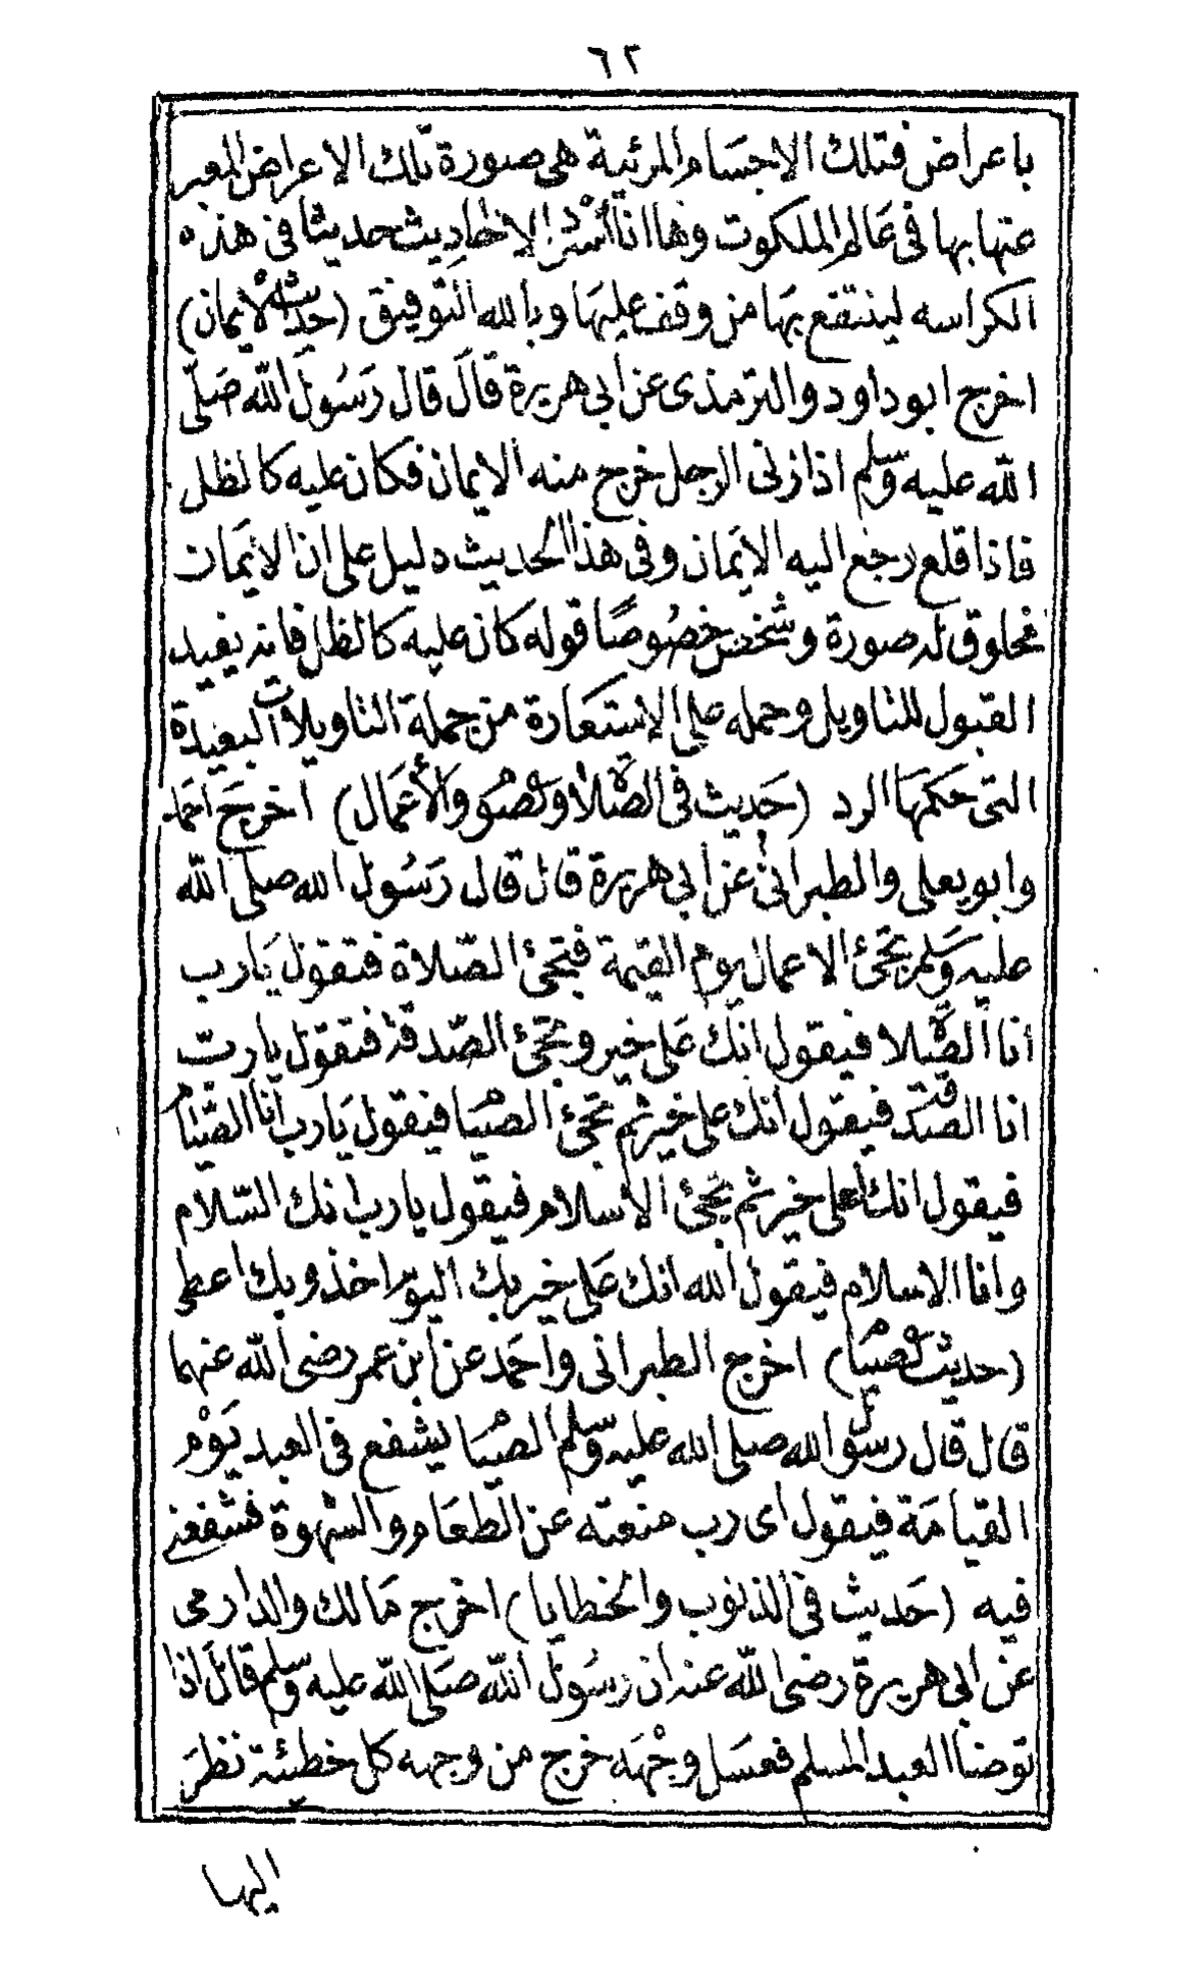 ٦٢
باعراض فتلك الاجسام المرئية هى صورة تلك الاعراض المعبر
عنها بها فى عالم الملكوت وها انا اسرد الاحاديث حديثا فى هذه
الكراسه لينتفع بها من وقف عليها وبالله التوفيق (حديث الايمان)
اخرج ابو داود والترمذى عن ابى هريرة قال قال رسول الله صلى
الله عليه وسلم اذا زنى الرجل خرج منه الايمان فكان عليه كالظل
فاذا قلع رجع اليه الايمان وفى هذا الحديث دليل على ان الايمان
مخلوق له صورة وشخص خصوصا قوله كان عليه كالظل فانه يفيد
القبول للتاويل وحمله على الاستعارة من جملة التاويلات البعيدة
التى حكمها الرد (حديث فى الصلاة والصوم والأعمال) اخرج احمد
وابو يعلى والطبرانى عن ابى هريرة قال قال رسول الله صلى الله
عليه وسلم تجئ الاعمال يوم القيمة فتجئ الصلاة فتقول يارب
انا الصلاة فيقول انك على خير وتجئ الصدقة فتقول يارب
انا الصدقة فيقول انك على خير ثم تجئ الصيام فيقول يارب انا الصيام
فيقول انك على خير ثم تجئ الاسلام فيقول يارب انك السلام
وانا الاسلام فيقول الله انك على خير بك اليوم اخذ وبك اعطى
(حديث الصيام) اخرج الطبرانى واحمد عن ابن عمر رضى الله عنهما
قال قال رسول الله صلى الله عليه وسلم الصيام يشفع فى العبد يوم
القيامة فيقول اى رب منعته عن الطعام والشهوة فشفعنى
فيه (حديث فى الذنوب والخطايا) اخرج مالك والدارمى
عن ابى هريرة رضى الله عنه ان رسول الله صلى الله عليه وسلم قال اذا
توضا العبد المسلم فغسل وجهه خرج من وجهه كل خطيئة نظر
اليها